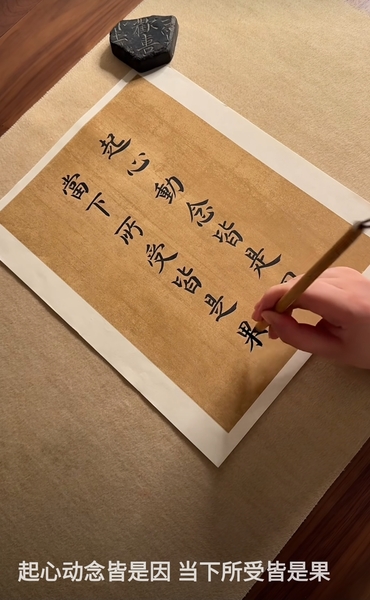 起心動念皆是
當下所受皆是果
起心动念皆是因 当下所受皆是果